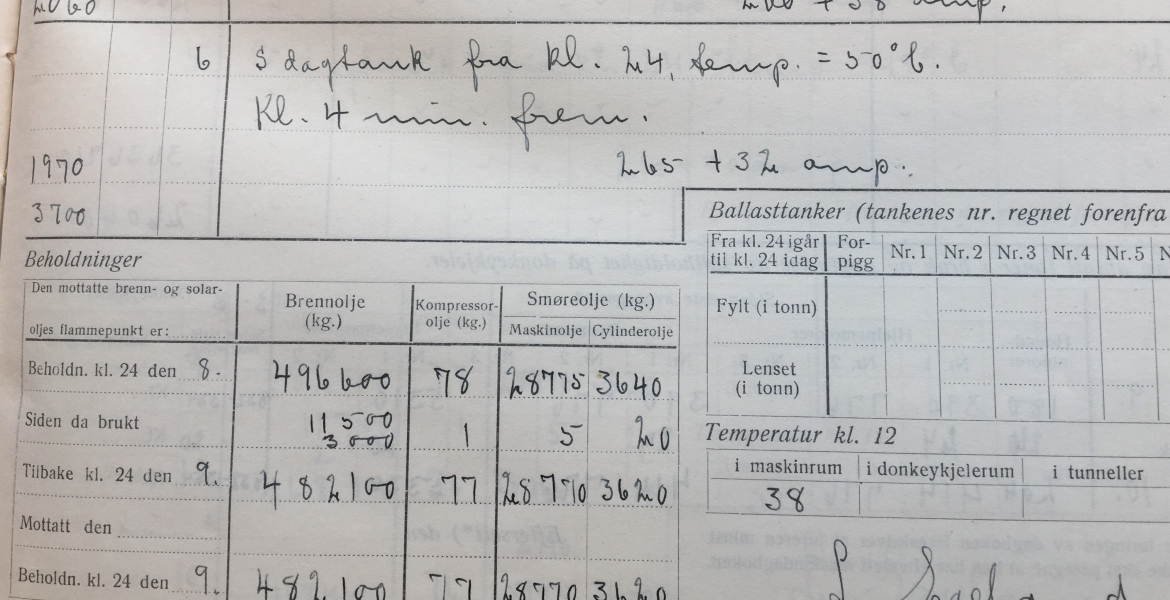 2060
6 S dagtank fra kl. 24, temp. = 50°C.
Kl. 4 min. frem.
1970 265 + 32 amp.
3700
Ballasttanker (tankenes nr. regnet forenfra
Fra kl. 24 igår til kl. 24 idag For-pigg Nr. 1 Nr. 2 Nr. 3 Nr. 4 Nr. 5 N
Fylt (i tonn)
Lenset (i tonn)
Temperatur kl. 12
i maskinrum i donkeykjelerum i tunneller
38
Beholdninger
Den mottatte brenn- og solar-
oljes flammepunkt er:
Brennolje (kg.) Kompressor-olje (kg.) Smøreolje (kg.)
Maskinolje Cylinderolje
Beholdn. kl. 24 den 8. 496600 78 28775 3640
Siden da brukt 11500 1 5 20
3000
Tilbake kl. 24 den 9. 482100 77 28770 3620
Mottatt den
Beholdn. kl. 24 den 9. 482100 77 28770 3620